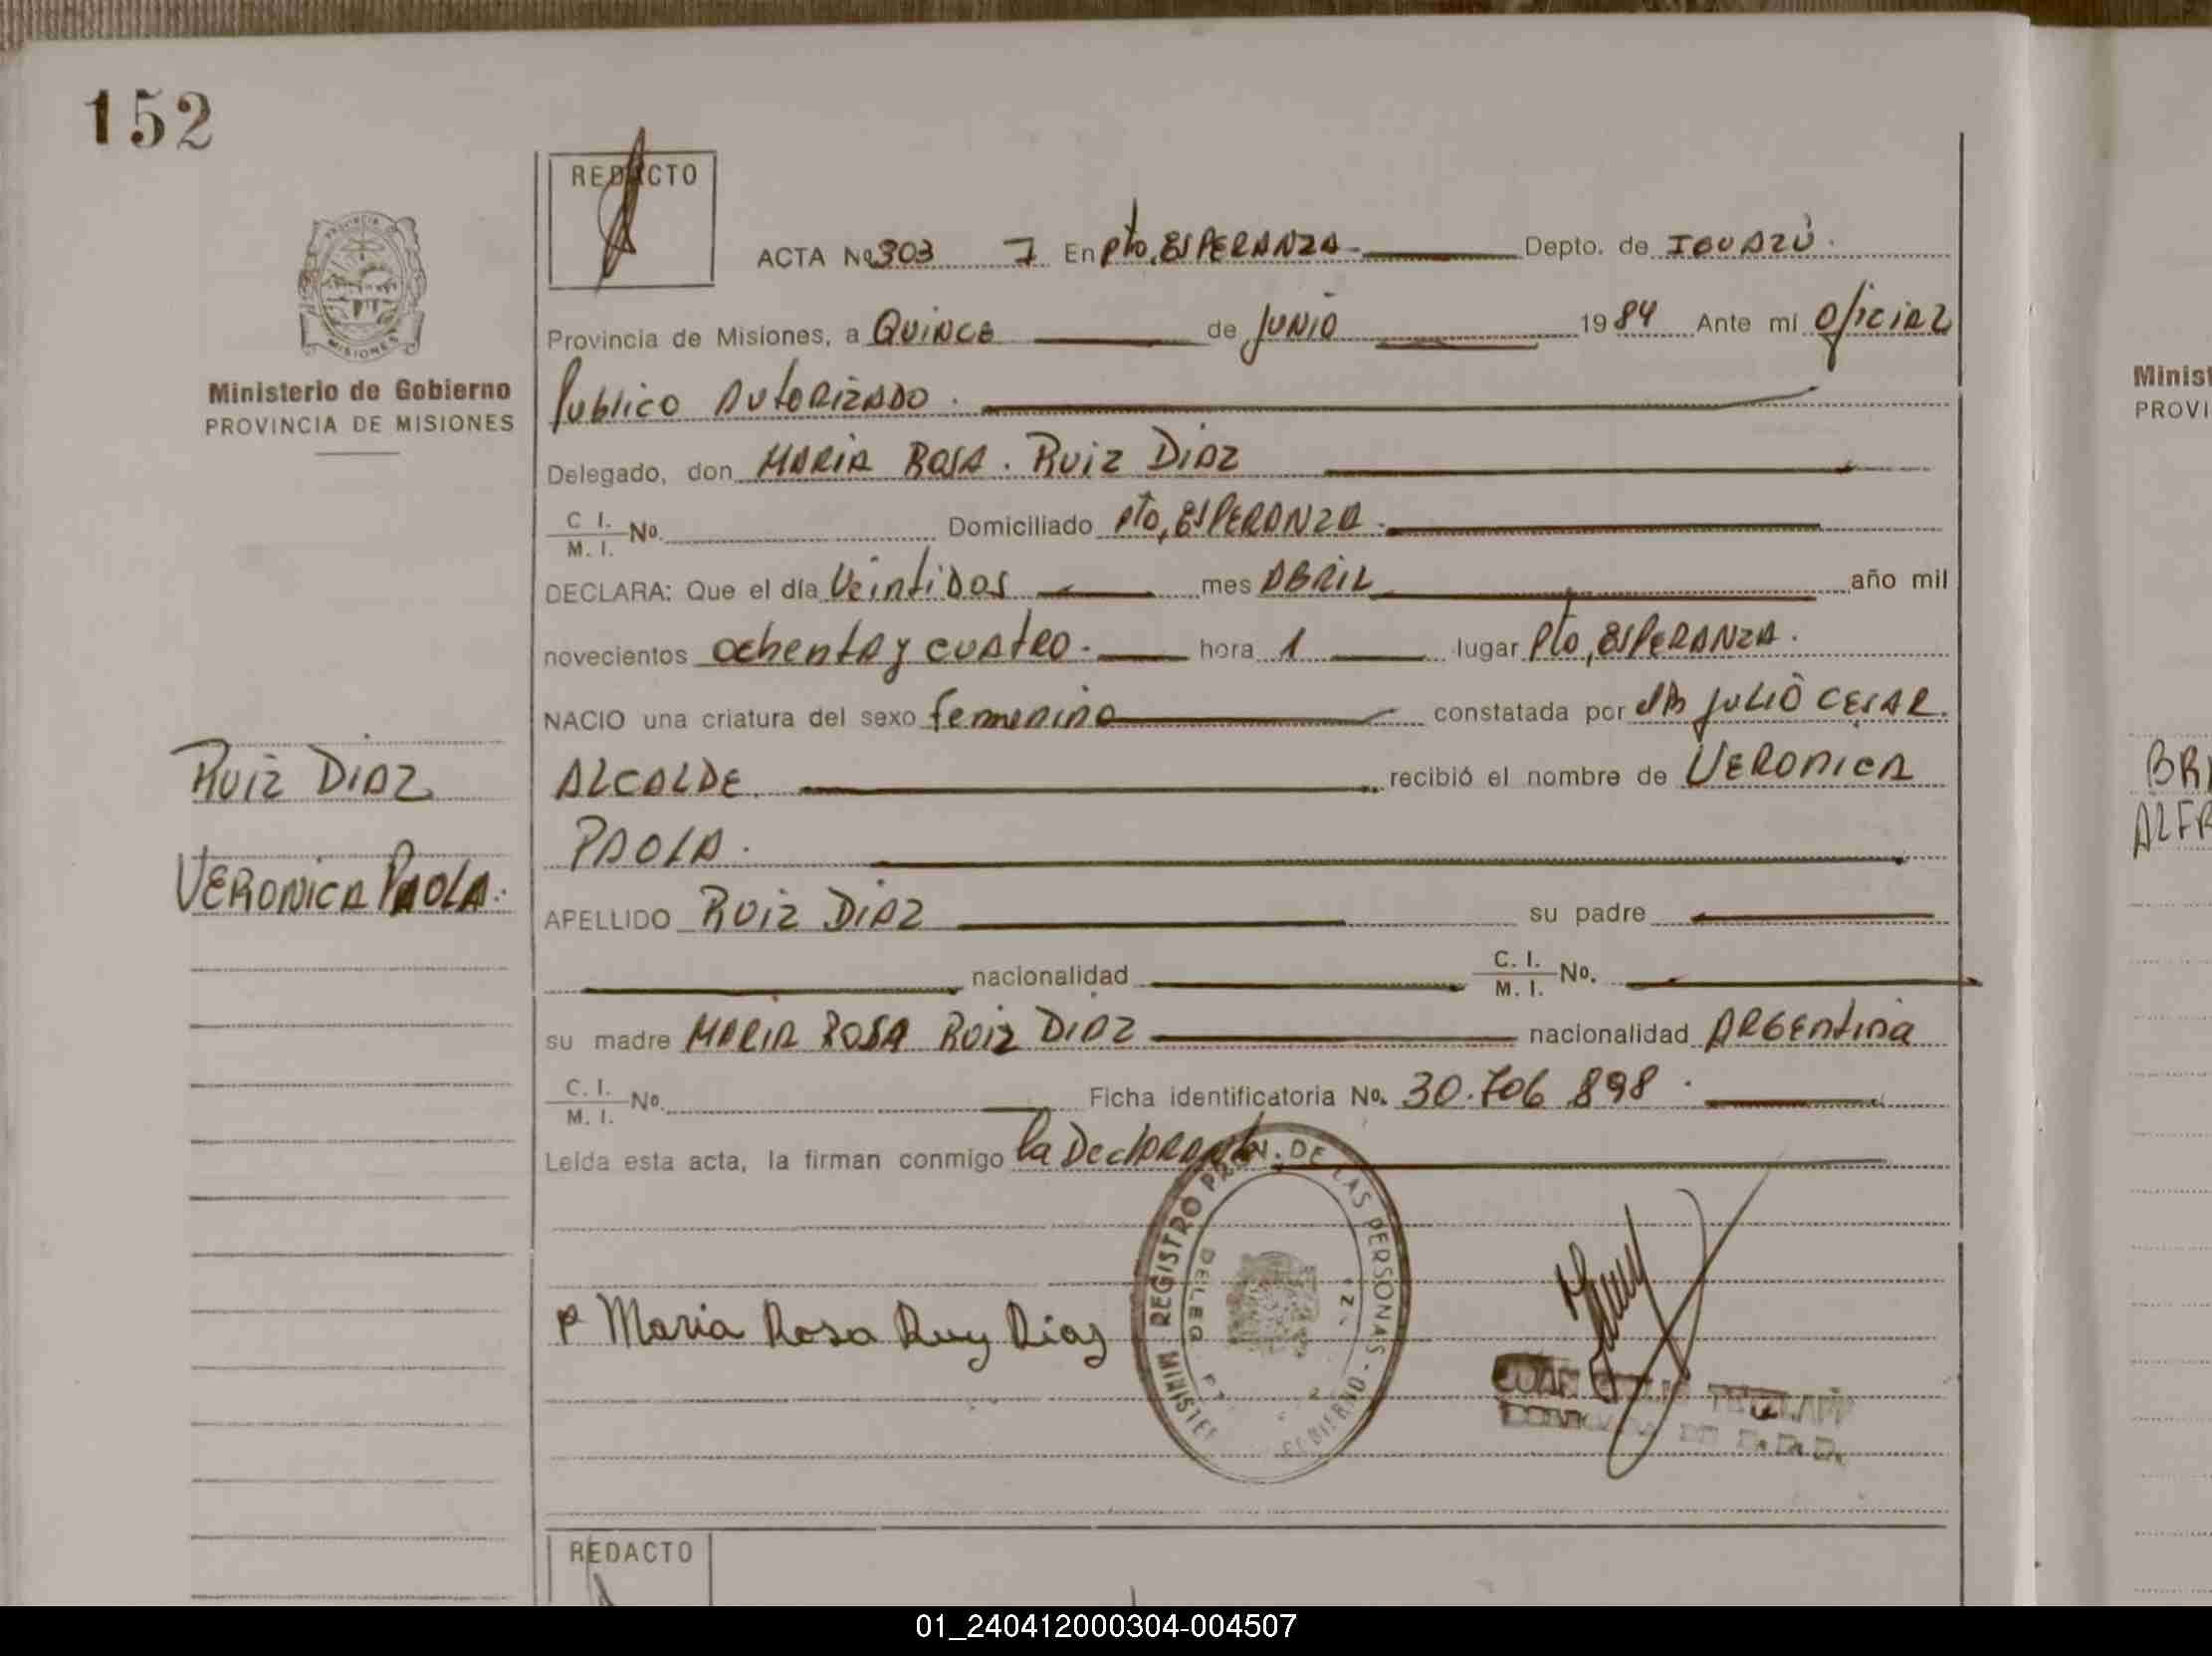 152
REDACTO
ACTA Nº 303 7 En Pto, ESPERANZA Depto. de IGUAZÚ.
Provincia de Misiones, a QUINCE de JUNIO 1984 Ante mi Oficial
Publico AUTORIZADO.
Delegado, don MARIA ROSA. RUIZ DIAZ
C I. M. I. No. Domiciliado Pto, ESPERANZA.
DECLARA: Que el día Veintidos mes ABRIL año mil
novecientos ochenta y cuatro. hora 1 lugar Pto, ESPERANZA.
NACIO una criatura del sexo femenino constatada por JULIO CESAR.
ALCALDE. recibió el nombre de VERONICA
PAOLA.
APELLIDO RUIZ DIAZ su padre
nacionalidad C. I. M. I. No.
su madre MARIA ROSA RUIZ DIAZ nacionalidad ARGENtina
C. I. M. I. No. Ficha identificatoria No. 30.706 898.
Leída esta acta, la firman conmigo la Declarante
PROVINCIA
MISIONES
Ministerio de Gobierno
PROVINCIA DE MISIONES
RUIZ DIAZ
VERONICA PAOLA.
Maria Rosa Ruy Dias
REGISTRO DE LAS PERSONAS
DELEG.
JUAN
REDACTO
Minist
PROVI
BRI
ALFR
01_240412000304-004507